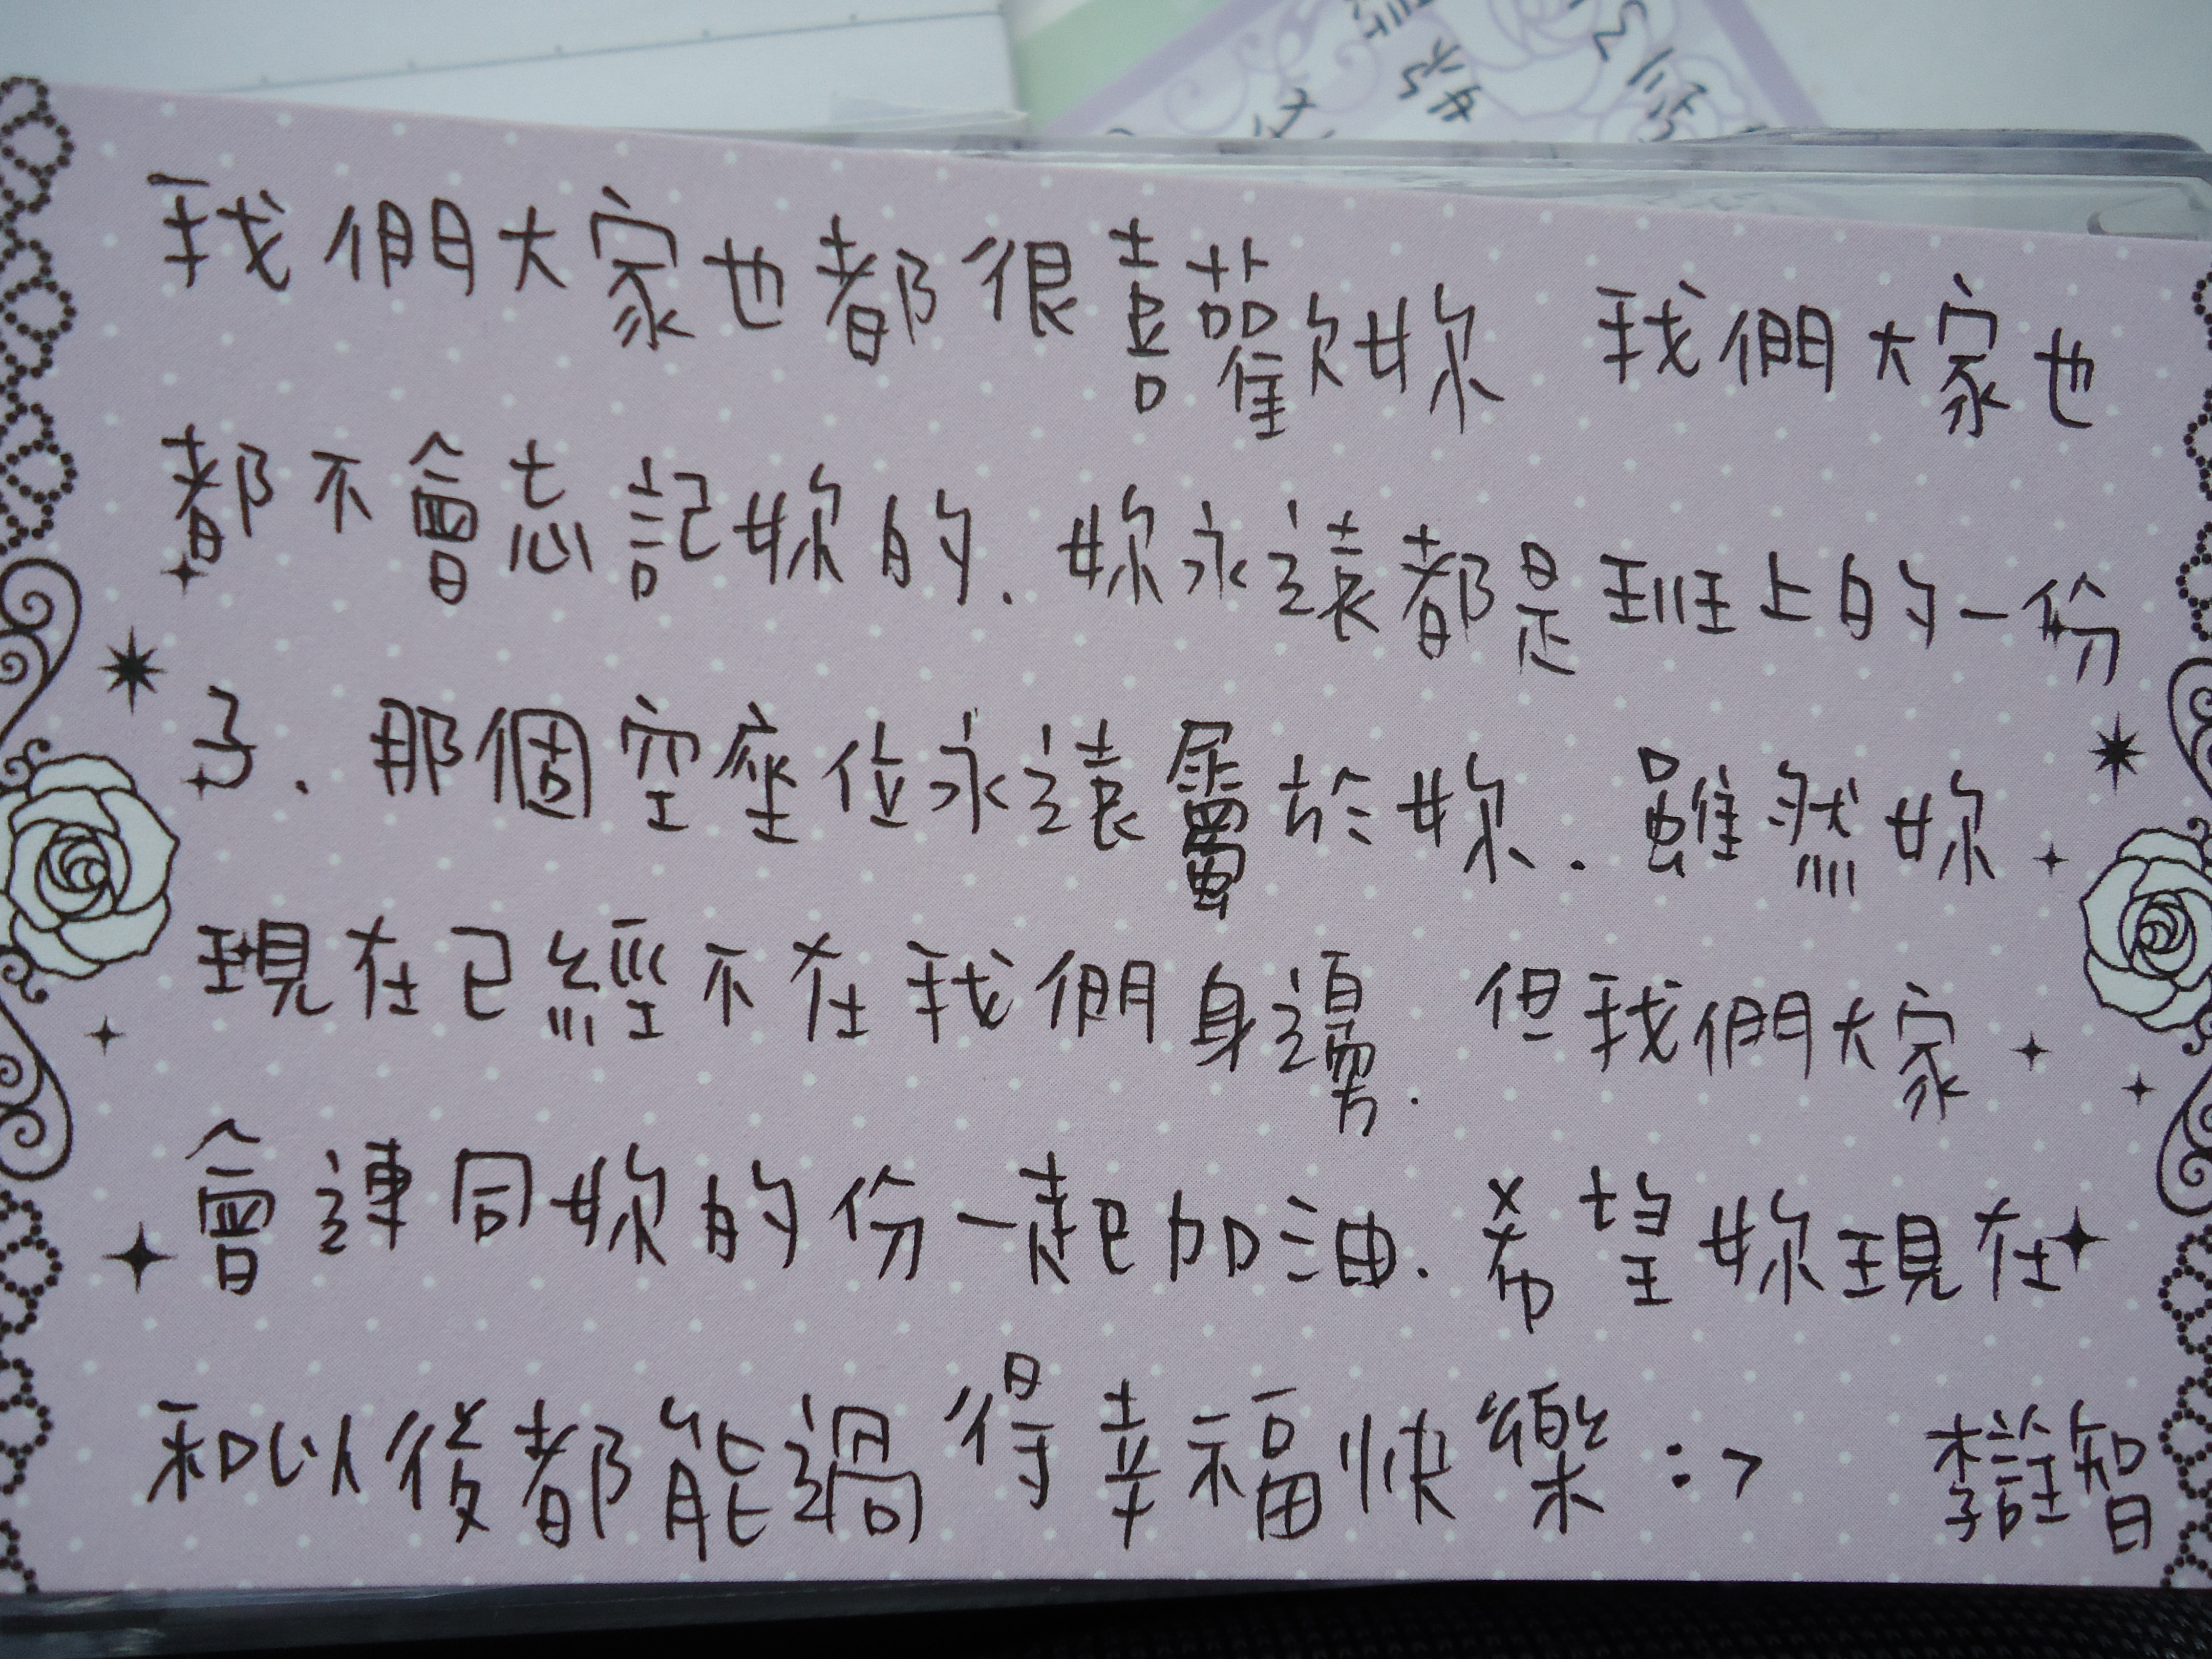 我們大家也都很喜歡妳 我們大家也
都不會忘記妳的.妳永遠都是班上的一份
子.那個空座位永遠屬於妳.雖然妳
現在已經不在我們身邊.但我們大家
會連同妳的份一起加油.希望妳現在
和以後都能過得幸福快樂:> 李詮智